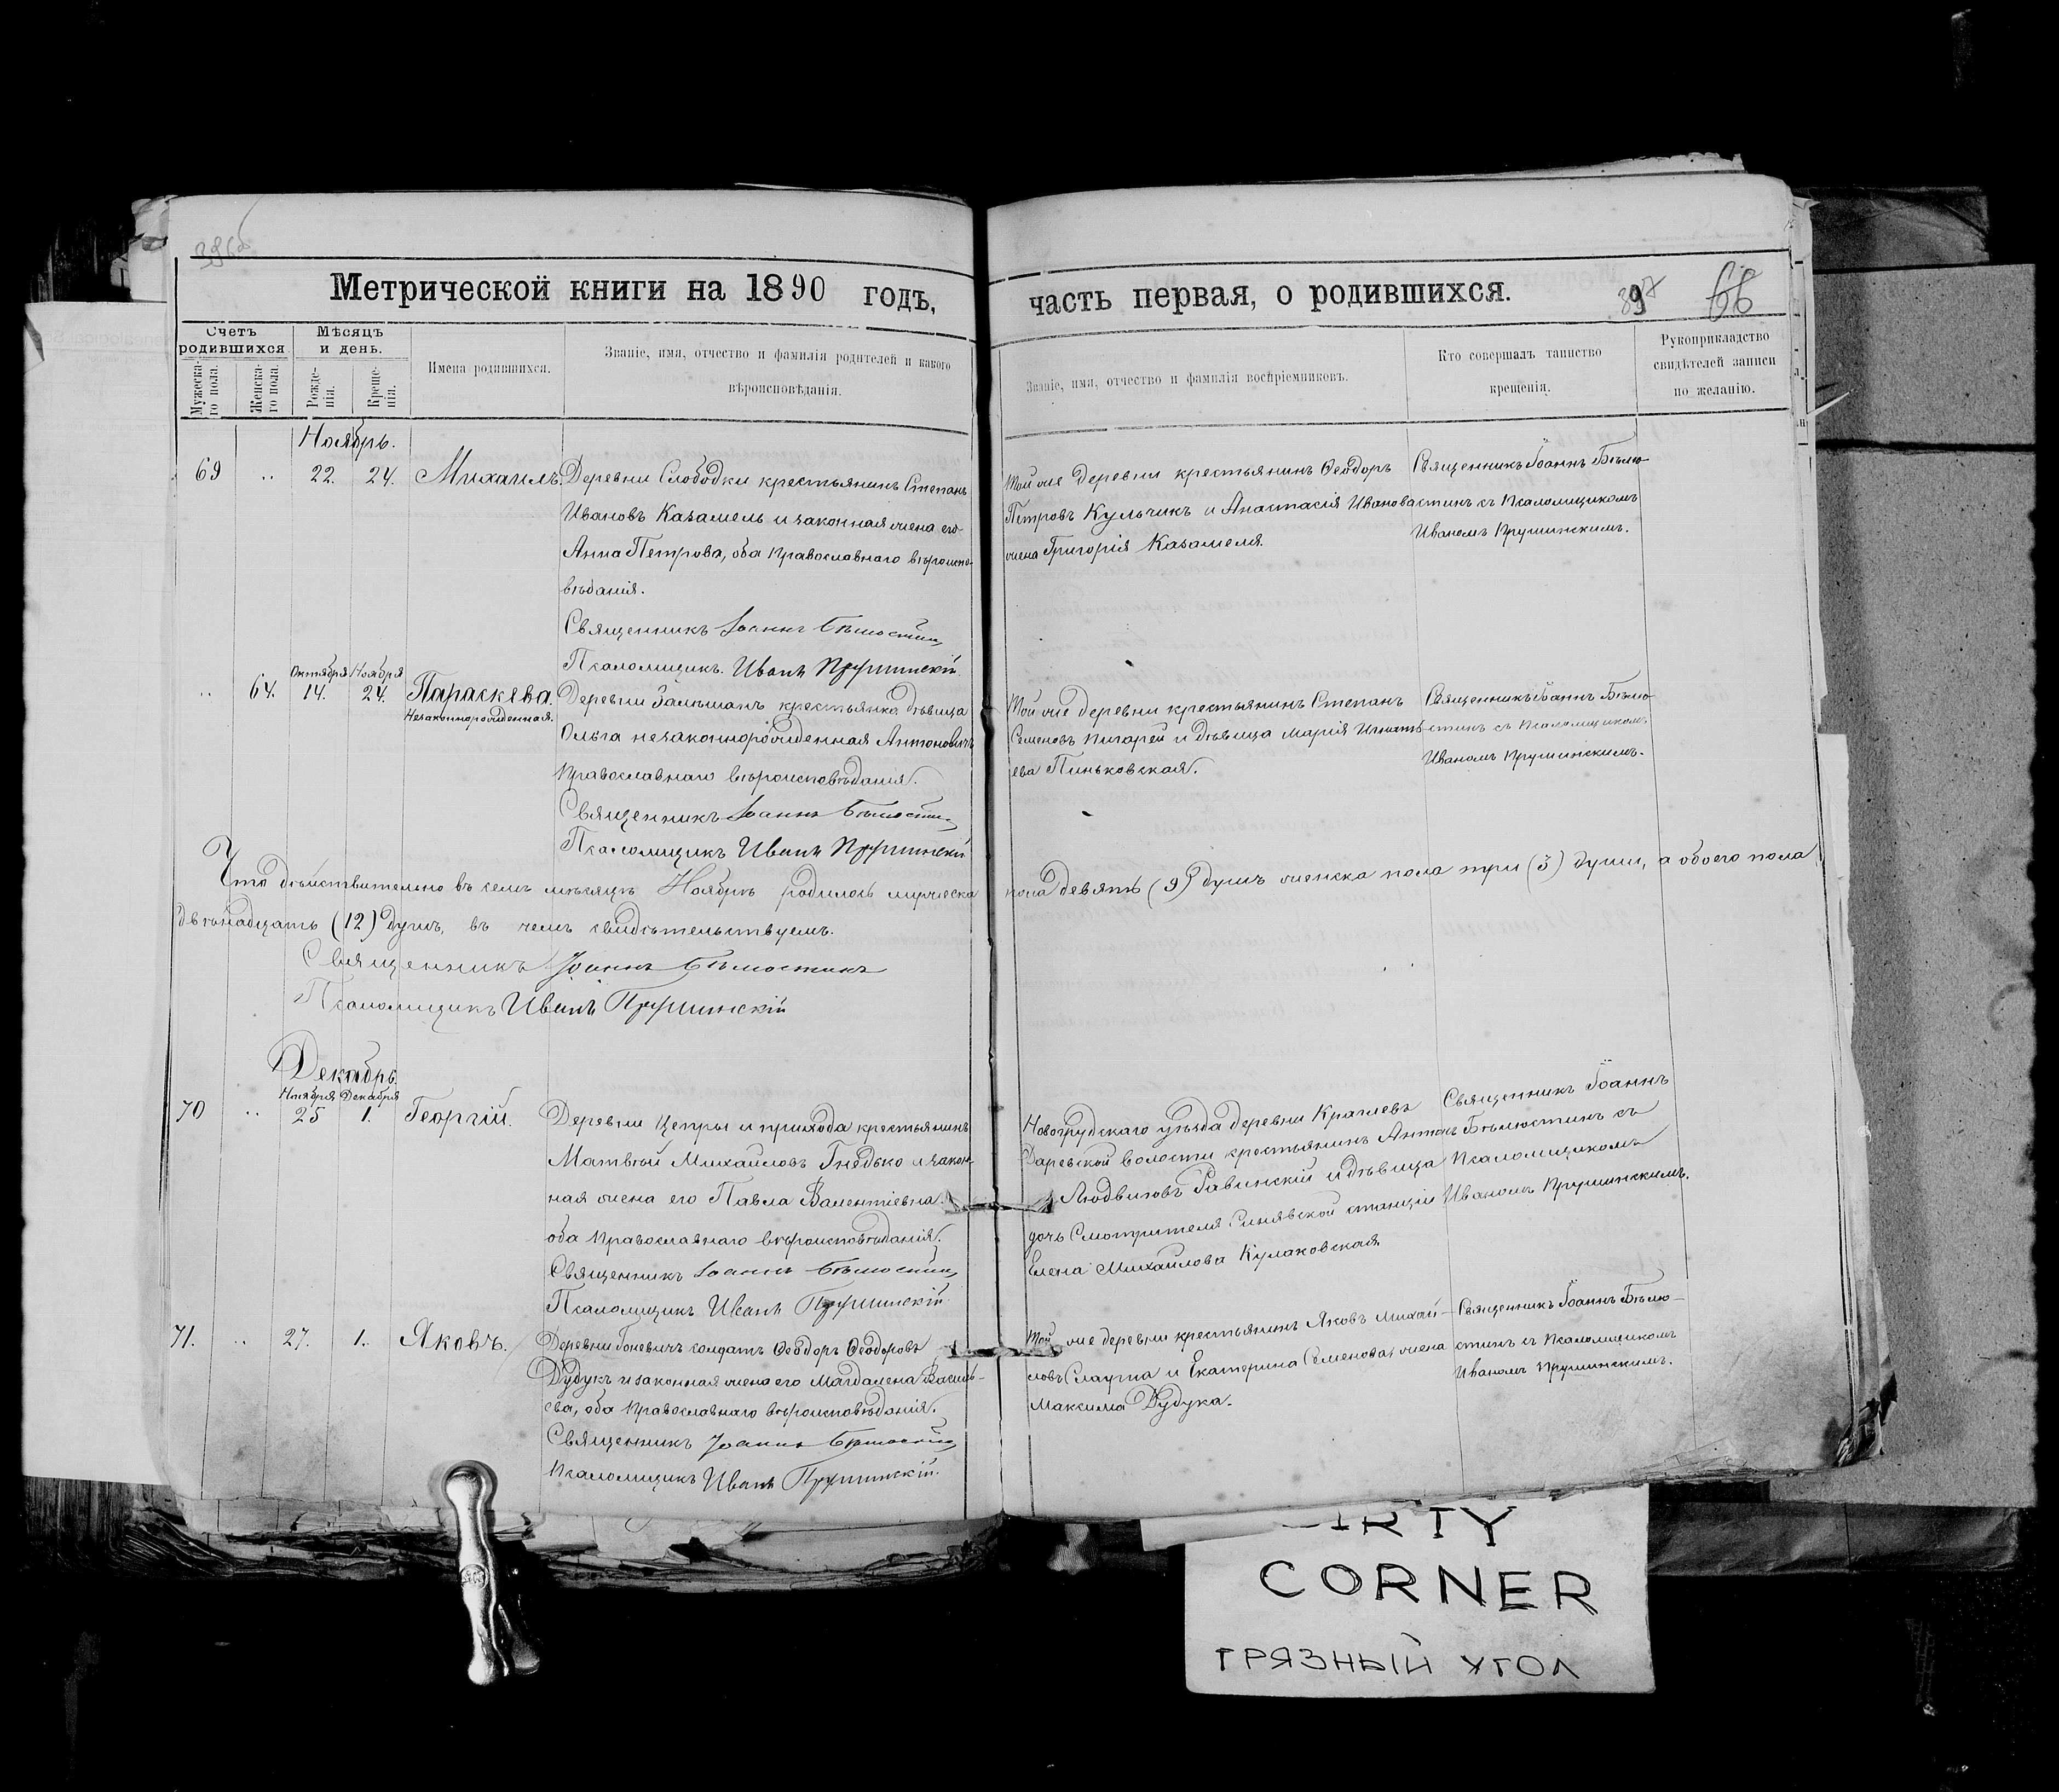 396об
Метрической книги на 1890 годъ,
часть первая, о родившихся.
397
68
Счетъ родившихся
Мѣсяцъ и день.
Мужеска-го пола.
Женска-го пола.
Рожде-нія.
Креще-нія.
Имена родившихся.
Званіе, имя, отчество и фамилія родителей и какого
вѣроисповѣданія.
Званіе, имя, отчество и фамилія воспріемниковъ.
Кто совершалъ таинство
крещенія.
Рукоприкладство
свидѣтелей записи
по желанію.
Ноябрь.
69 .. 22. 24. Михаилъ.
Деревни Слободки крестьянинъ Степанъ
Ивановъ Казамель и законная жена его
Анна Петрова, оба Православнаго вѣроиспо-
вѣданія.
Священникъ Іоаннъ Бѣлюстинъ
Псаломщикъ. Иванъ Прушинскій
Той же деревни крестьянинъ Ѳеодоръ
Петровъ Кульчикъ и Анастасія Иванова
жена Григорія Казамеля.
Священникъ Іоаннъ Бѣлю-
стинъ съ Псаломщикомъ
Иваномъ Прушинскимъ.
Октября Ноября
.. 64. 14. 24. Параскева.
Незаконнорожденная.
Деревни Залѣшанъ крестьянка дѣвица
Ольга незаконнорожденная Антоновичъ
Православнаго вѣроисповѣданія.
Священникъ Іоаннъ Бѣлюстинъ
Псаломщикъ Иванъ Прушинскій
Той же деревни крестьянинъ Степанъ
Семеновъ Пигарей и дѣвица Марія Игнать-
ева Пиньковская.
Священникъ Іоаннъ Бѣлю-
стинъ съ Псаломщикомъ
Иваномъ Прушинскимъ.
Что дѣйствительно въ семъ мѣсяцѣ Ноябрѣ родилось мужеска пола девять (9) душъ женска пола три (3) души, а обоего пола
двѣнадцать (12) душъ, въ чемъ свидѣтельствуемъ.
Священникъ Іоаннъ Бѣлюстинъ
Псаломщикъ Иванъ Прушинскій
Декабрь.
Ноября Декабря
70 .. 25 1. Георгій.
Деревни Цепры и прихода крестьянинъ
Матвѣй Михайловъ Гнедько и закон-
ная жена его Павла Валентіевна.
оба Православнаго вѣроисповѣданія.
Священникъ Іоаннъ Бѣлюстинъ
Псаломщикъ Иванъ Прушинскій
Новогрудскаго уѣзда деревни
Даревской волости крестьянинъ Антонъ
Людвиговъ Равинскій и дѣвица
дочь Смотрителя Синявской станціи
Елена Михайлова Кулаковская.
Священникъ Іоаннъ
Бѣлюстинъ съ
Псаломщикомъ
Иваномъ Прушинскимъ.
71. .. 27. 1. Яковъ.
Деревни Гоневичъ солдатъ Ѳеодоръ Ѳеодоровъ
Дудукъ и законная жена его Магдалена Василь-
ева, оба Православнаго вѣроисповѣданія.
Священникъ Іоаннъ Бѣлюстинъ
Псаломщикъ Иванъ Прушинскій.
Той же деревни крестьянинъ Яковъ Михай-
ловъ Слаута и Екатерина Семенова жена
Максима Дудука.
Священникъ Іоаннъ Бѣлю-
стинъ съ Псаломщикомъ
Иваномъ Прушинскимъ.
CORNER
ГРЯЗНЫЙ УГОЛ